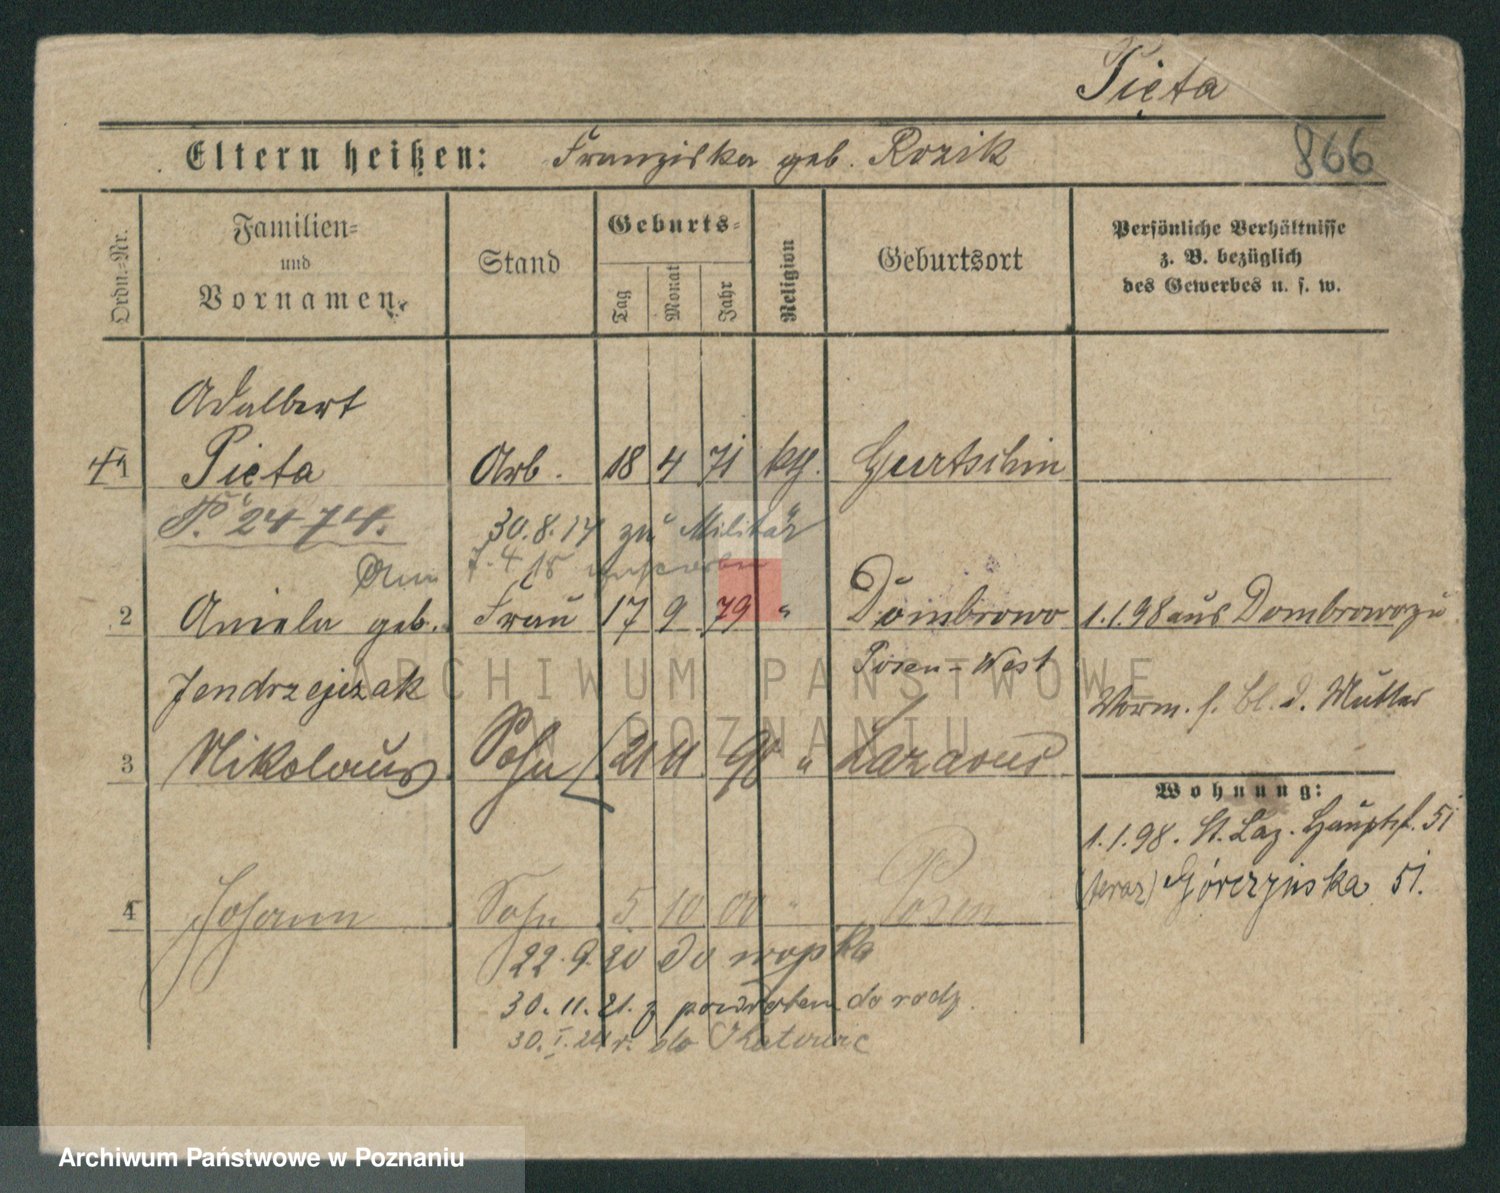 Pięta
866
Eltern heißen: Franziska geb. Rozik
Ordn.-Nr.
Familien- und Vornamen.
Stand
Geburts-
Tag
Monat
Jahr
Religion
Geburtsort
Persönliche Verhältnisse
z. B. bezüglich
des Gewerbes u. s. w.
Adalbert
1 Pieta Arb. 18 4 71 kth. Gurtschin
P. 2474.
30.8.14 zu Militär
7.4.15
2 Aniela geb. Frau 17 9 79 " Dombrowo 1.1.98 aus Dombrowo zu
Posen-West
Jendrzejczak
Vorm. f. bl. d. Mutter
3 Nikolaus Sohn 21 11 98 " Lazarus
Wohnung:
1.1.98. St. Laz. Hauptst. 51
(teraz) Górczyńska 51.
4 Johann Sohn 5 10 00 " Posen
22.9.20 do wojska
30.11.21. z powrotem do rodz.
30.I.24 r. do Katowic
ARCHIWUM PAŃSTWOWE
W POZNANIU
Archiwum Państwowe w Poznaniu